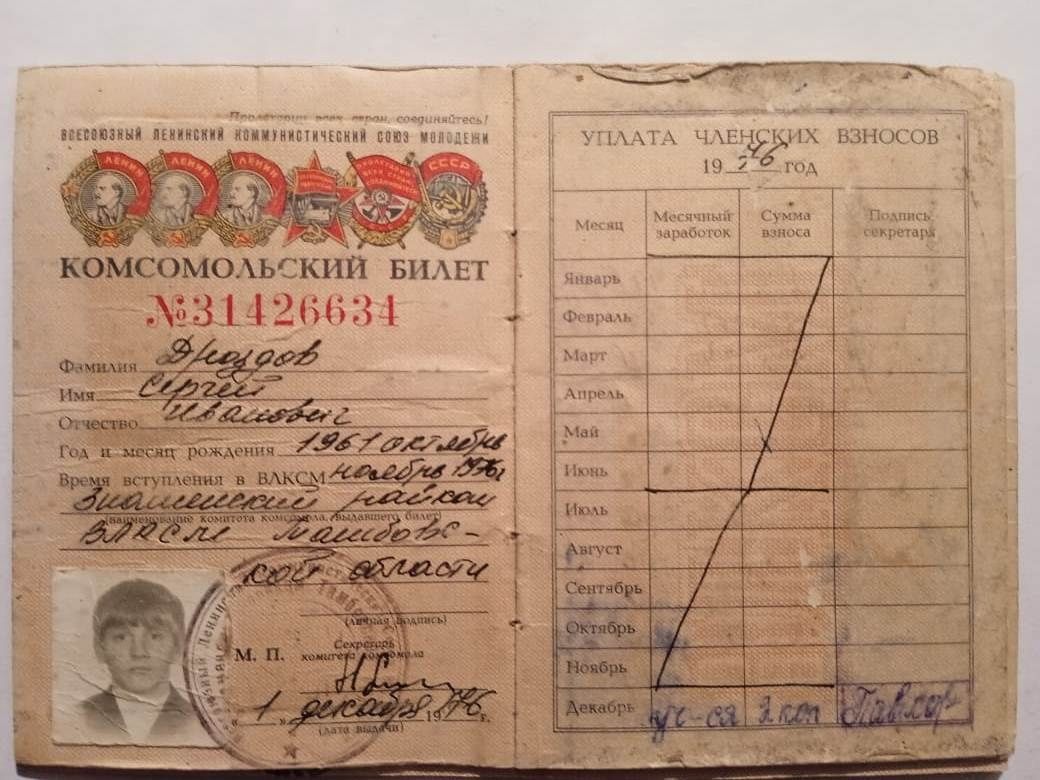 Пролетарии всех стран, соединяйтесь!
ВСЕСОЮЗНЫЙ ЛЕНИНСКИЙ КОММУНИСТИЧЕСКИЙ СОЮЗ МОЛОДЕЖИ
ЛЕНИН ЛЕНИН ЛЕНИН СССР
КОМСОМОЛЬСКИЙ БИЛЕТ
№31426634
Фамилия Дроздов
Имя Сергей
Отчество Иванович
Год и месяц рождения 1961 октябрь
Время вступления в ВЛКСМ ноябрь 1976г
Знаменский райком
(наименование комитета комсомола, выдавшего билет)
ВЛКСМ Тамбовс-
кой области
(личная подпись)
М. П.
Секретарь
комитета комсомола
„1„ декабря 1976 г.
(дата выдачи)
УПЛАТА ЧЛЕНСКИХ ВЗНОСОВ
1976 год
Месяц Месячный заработок Сумма взноса Подпись секретаря
Январь
Февраль
Март
Апрель
Май
Июнь
Июль
Август
Сентябрь
Октябрь
Ноябрь
Декабрь уч-ся 2 коп